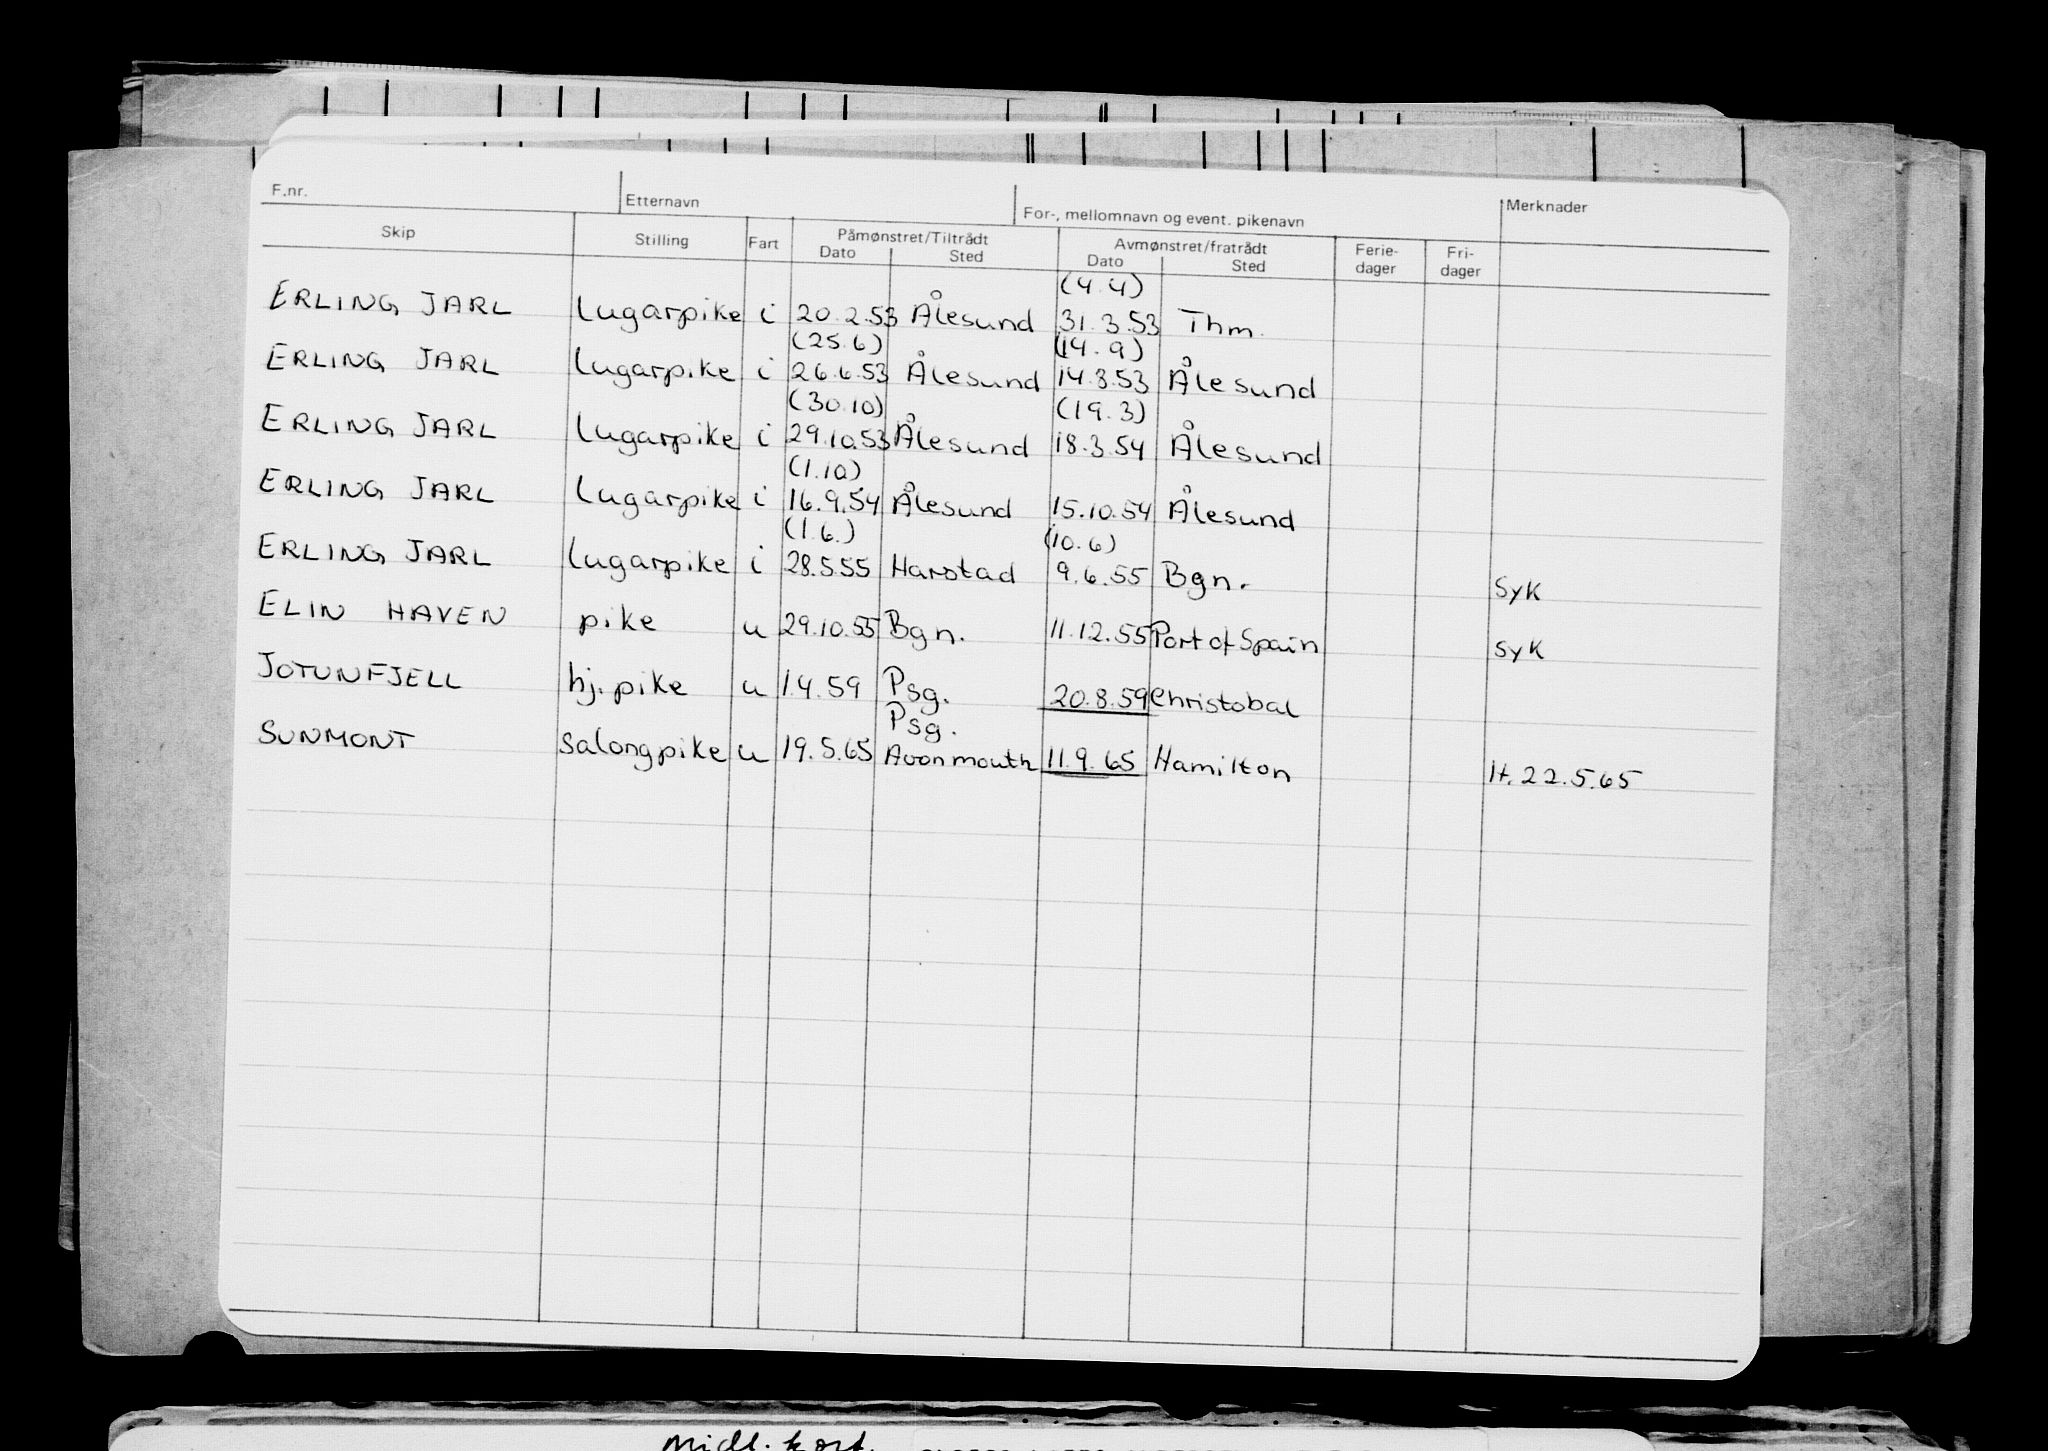 F.nr. Etternavn For-, mellomnavn og event. pikenavn Merknader
Skip Stilling Fart Påmønstret/Tiltrådt Avmønstret/fratrådt Ferie- Fri-
Dato Sted Dato Sted dager dager
(4.4)
ERLING JARL lugarpike i 20.2.53 Ålesund 31.3.53 Thm.
(25.6) (14.9)
ERLING JARL lugarpike i 26.6.53 Ålesund 14.8.53 Ålesund
(30.10) (19.3)
ERLING JARL lugarpike i 29.10.53 Ålesund 18.3.54 Ålesund
(1.10)
ERLING JARL lugarpike i 16.9.54 Ålesund 15.10.54 Ålesund
(1.6.) (10.6)
ERLING JARL lugarpike i 28.5.55 Harstad 9.6.55 Bgn. Syk
ELIN HAVEN pike u 29.10.55 Bgn. 11.12.55 Port of Spain Syk
JOTUNFJELL hj.pike u 1.4.59 Psg. 20.8.59 Christobal
Psg.
SUNMONT salongpike u 19.5.65 Avonmouth 11.9.65 Hamilton H.22.5.65
Midl. kort.